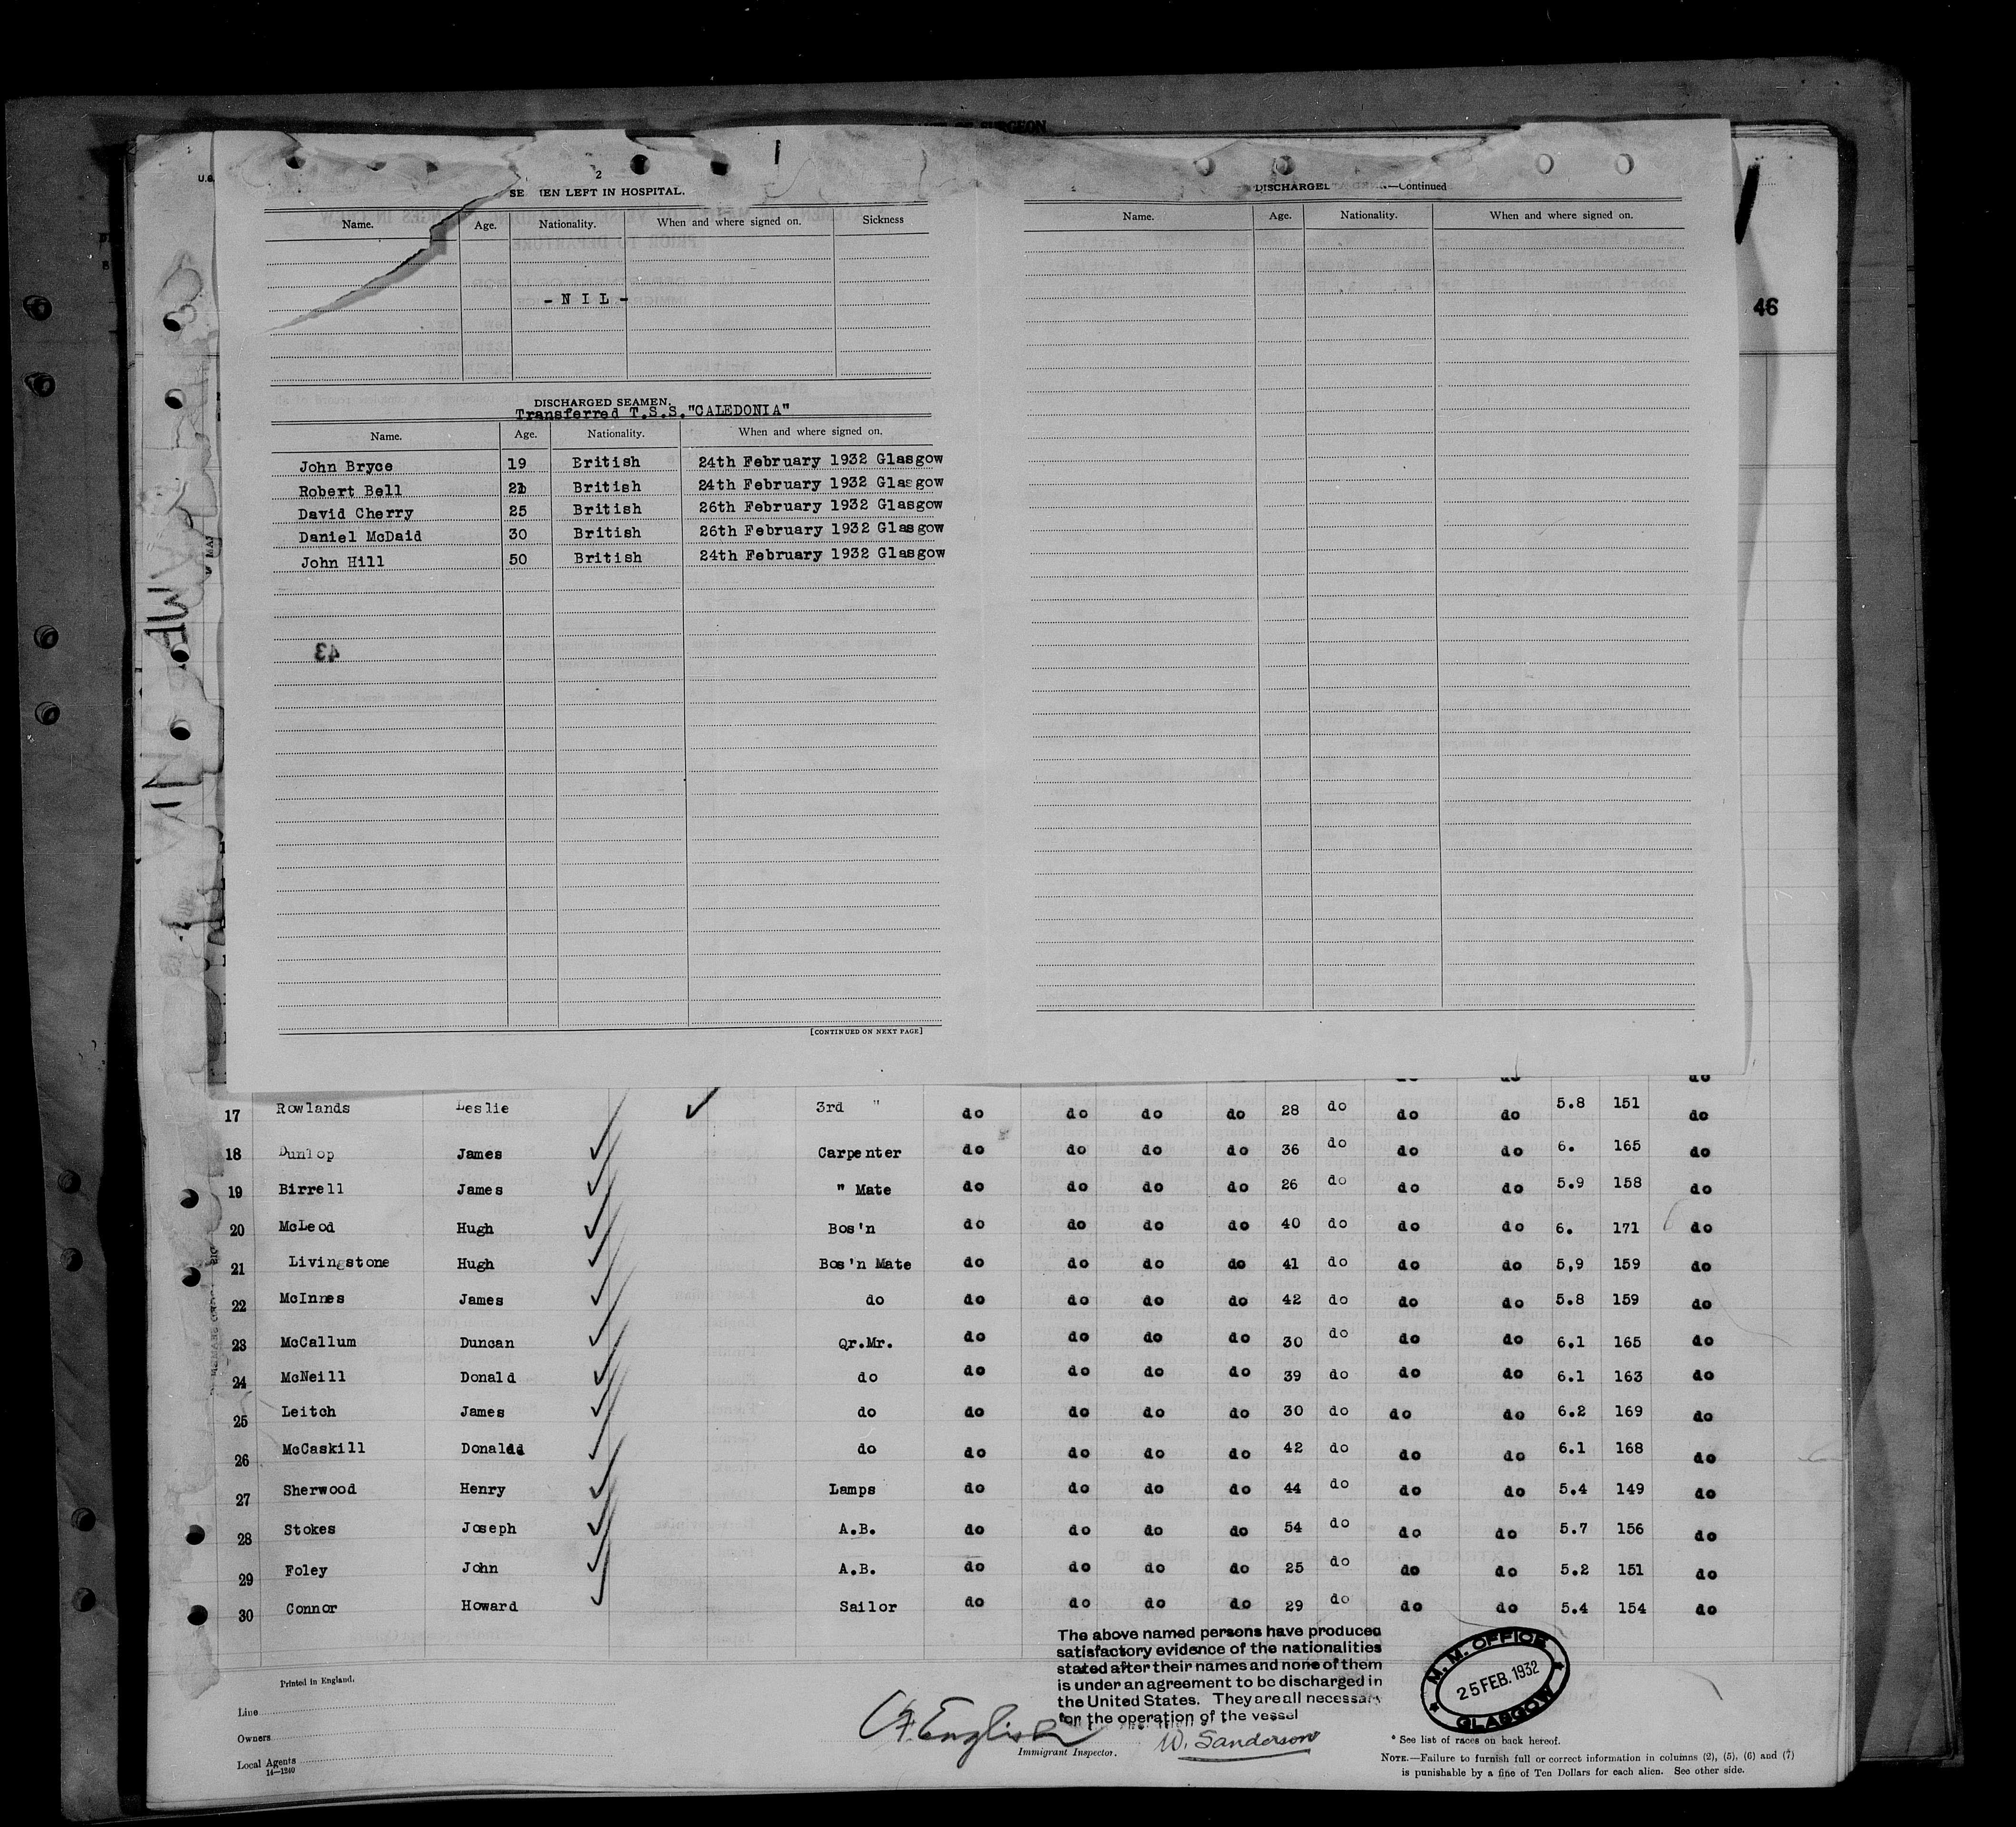 2
SEAMEN LEFT IN HOSPITAL.
Name. Age. Nationality. When and where signed on. Sickness
- N I L -
DISCHARGED SEAMEN.
Transferred T.S.S."CALEDONIA"
Name. Age. Nationality. When and where signed on.
John Bryce 19 British 24th February 1932 Glasgow
Robert Bell British 24th February 1932 Glasgow
David Cherry 25 British 26th February 1932 Glasgow
Daniel McDaid 30 British 26th February 1932 Glasgow
John Hill 50 British 24th February 1932 Glasgow
43
[CONTINUED ON NEXT PAGE]
SURGEON
DISCHARGED —Continued
Name. Age. Nationality. When and where signed on.
46
17 Rowlands Leslie 3rd " do do do do 28 do do do 5.8 151 do
18 Dunlop James Carpenter do do do do 36 do do do 6. 165 do
19 Birrell James " Mate do do do do 26 do do do 5.9 158 do
20 McLeod Hugh Bos'n do do do do 40 do do do 6. 171 do
21 Livingstone Hugh Bos'n Mate do do do do 41 do do do 5,9 159 do
22 McInnes James do do do do do 42 do do do 5.8 159 do
23 McCallum Duncan Qr.Mr. do do do do 30 do do do 6.1 165 do
24 McNeill Donald do do do do do 39 do do do 6.1 163 do
25 Leitch James do do do do do 30 do do do 6.2 169 do
26 McCaskill Donaldd do do do do do 42 do do do 6.1 168 do
27 Sherwood Henry Lamps do do do do 44 do do do 5.4 149 do
28 Stokes Joseph A.B. do do do do 54 do do do 5.7 156 do
29 Foley John A.B. do do do do 25 do do do 5.2 151 do
30 Connor Howard Sailor do do do do 29 do do do 5.4 154 do
The above named persons have produced
satisfactory evidence of the nationalities
stated after their names and none of them
is under an agreement to be discharged in
the United States. They are all necessary
for the operation of the vessel
M. M. OFFICE
25 FEB. 1932
GLASGOW
Printed in England.
Line
Owners
Local Agents
14—1240
English
Immigrant Inspector.
W. Sanderson
* See list of races on back hereof.
NOTE.—Failure to furnish full or correct information in columns (2), (5), (6) and (7)
is punishable by a fine of Ten Dollars for each alien. See other side.